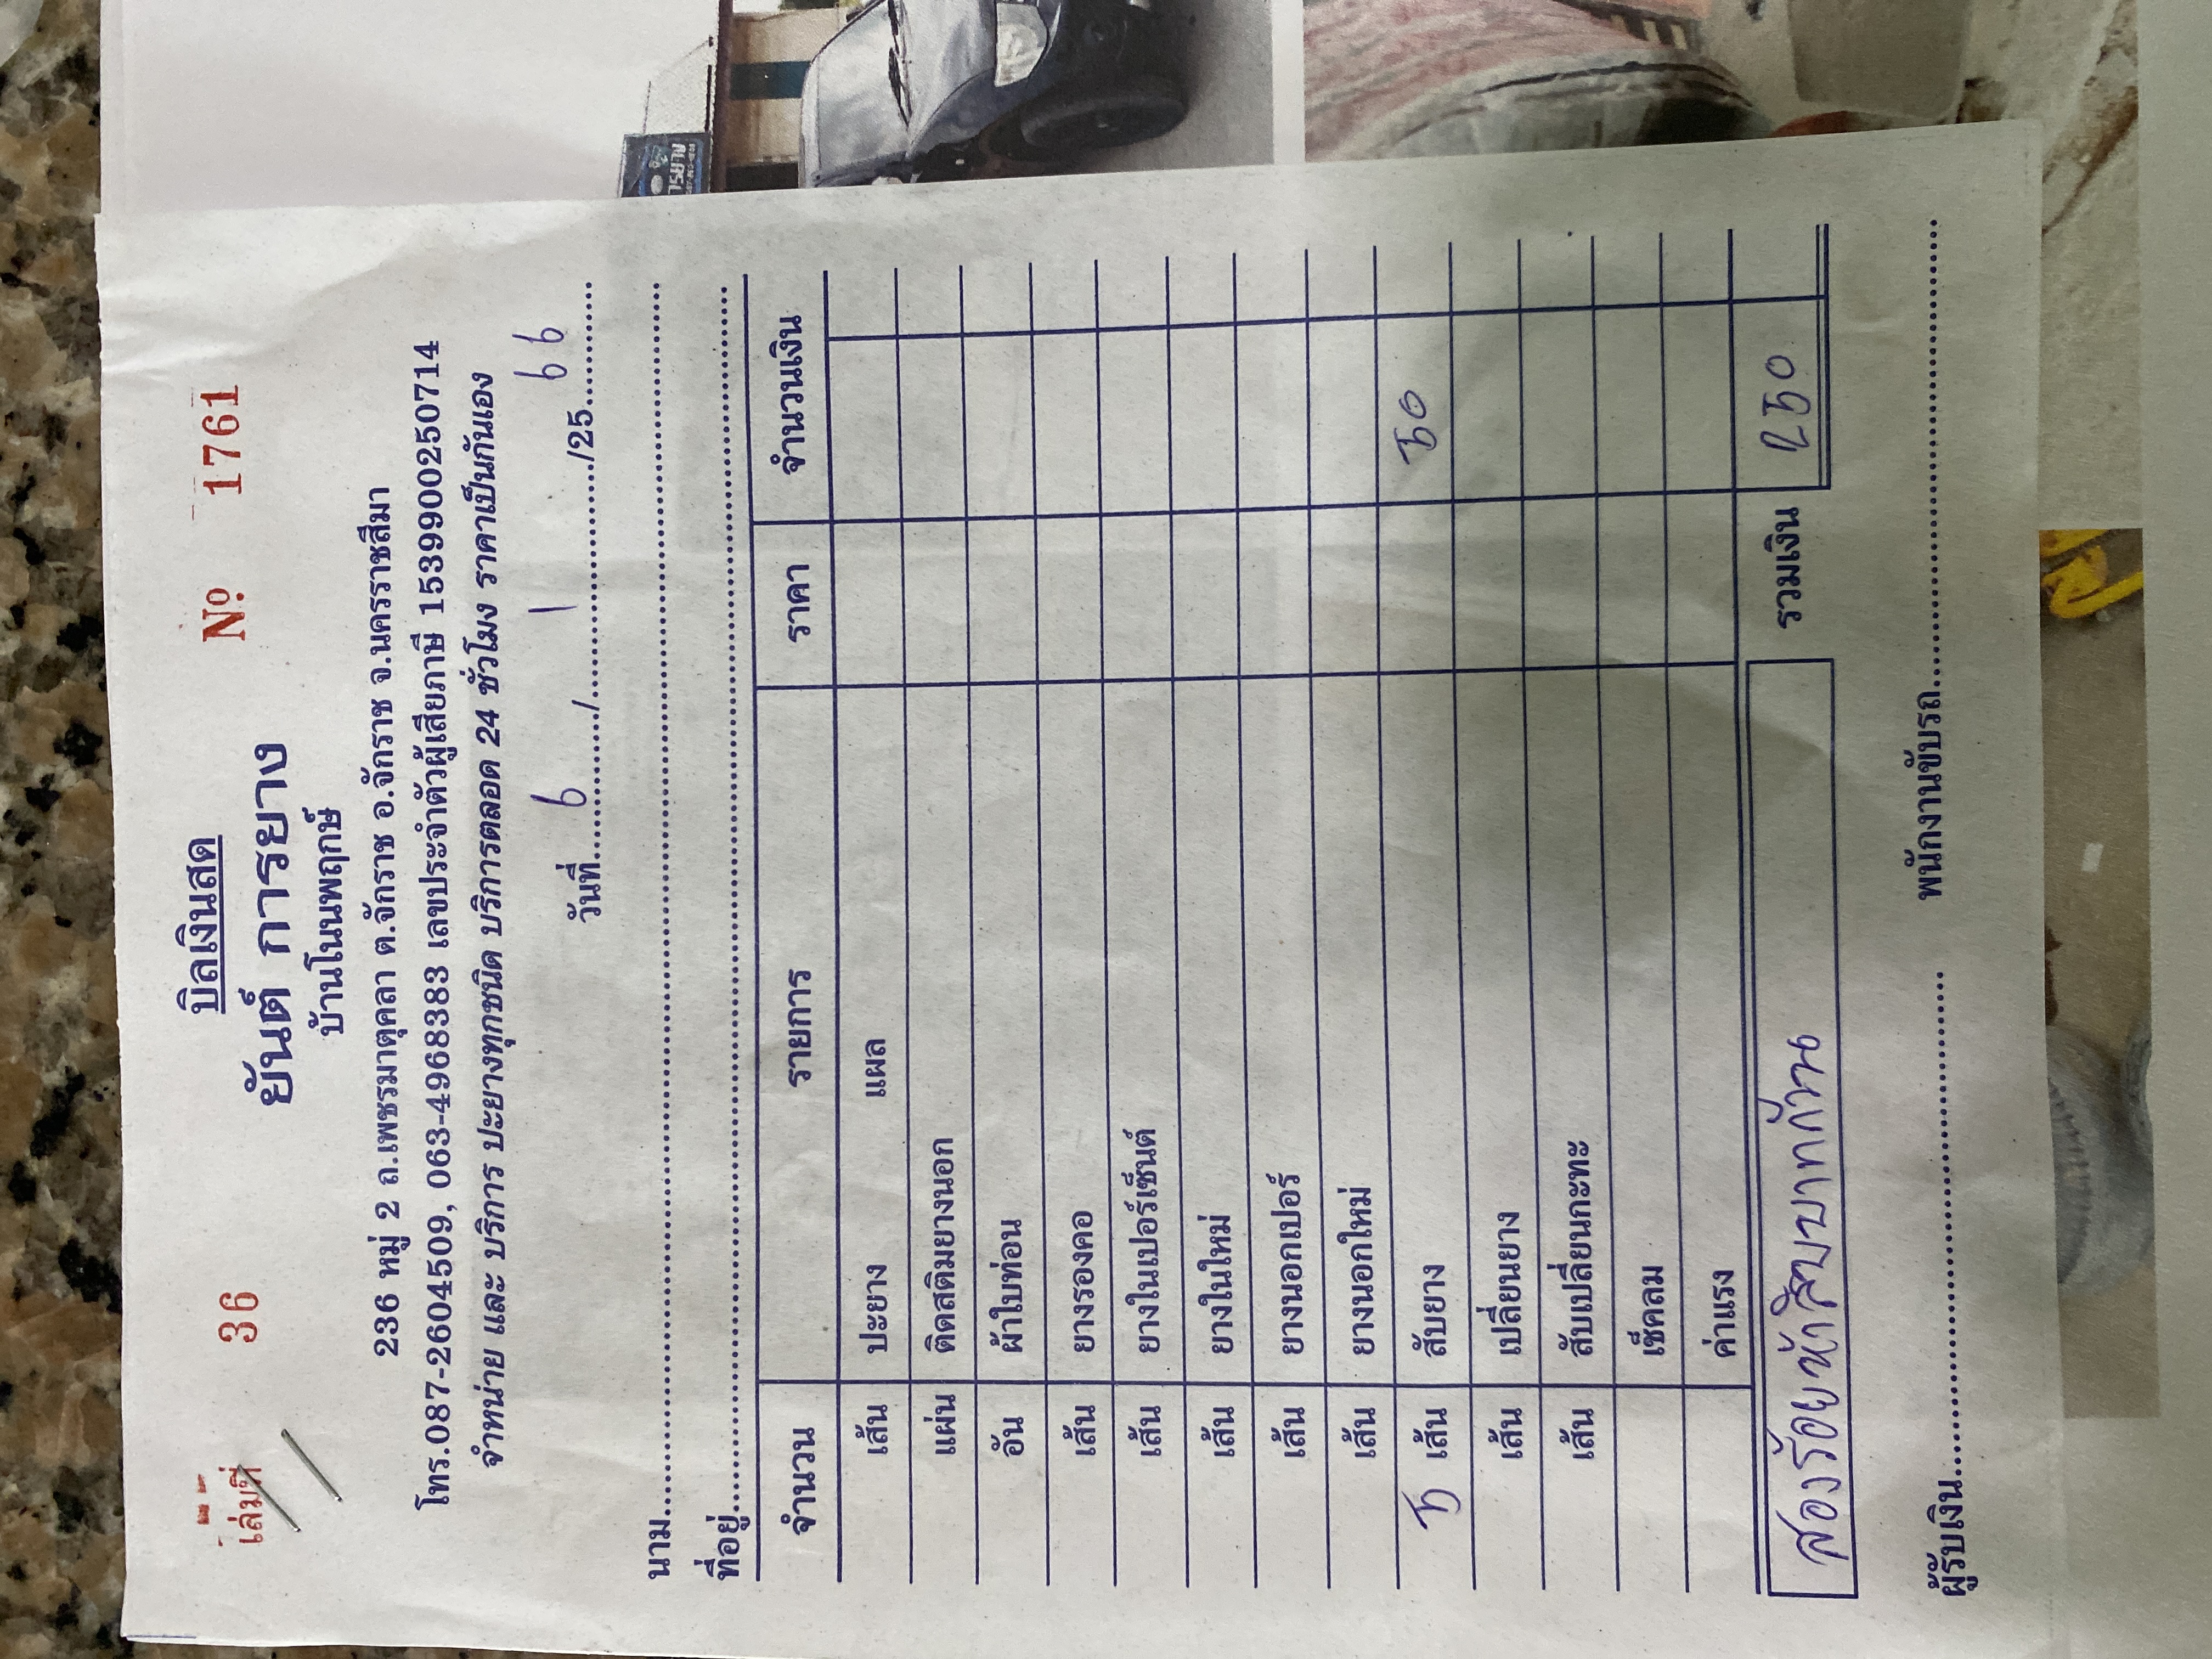 เล่มที่ 36 บิลเงินสด Nº 1761
ยันต์ การยาง
บ้านโนนพฤกษ์
236 หมู่ 2 ถ.เพชรมาตุคลา ต.จักราช อ.จักราช จ.นครราชสีมา
โทร.087-2604509, 063-4968383 เลขประจำตัวผู้เสียภาษี 1539900250714
จำหน่าย และ บริการ ปะยางทุกชนิด บริการตลอด 24 ชั่วโมง ราคาเป็นกันเอง
วันที่ 6 / 1 /25 66
นาม
ที่อยู่
จำนวน รายการ ราคา จำนวนเงิน
เส้น ปะยาง แผล
แผ่น ติดสติมยางนอก
อัน ผ้าใบท่อน
เส้น ยางรองคอ
เส้น ยางในเปอร์เซ็นต์
เส้น ยางในใหม่
เส้น ยางนอกเปอร์
เส้น ยางนอกใหม่
5 เส้น สับยาง 50
เส้น เปลี่ยนยาง
เส้น สับเปลี่ยนกะทะ
เช็คลม
ค่าแรง
สองร้อยห้าสิบบาทถ้วน รวมเงิน 250
ผู้รับเงิน พนักงานขับรถ
การยาง